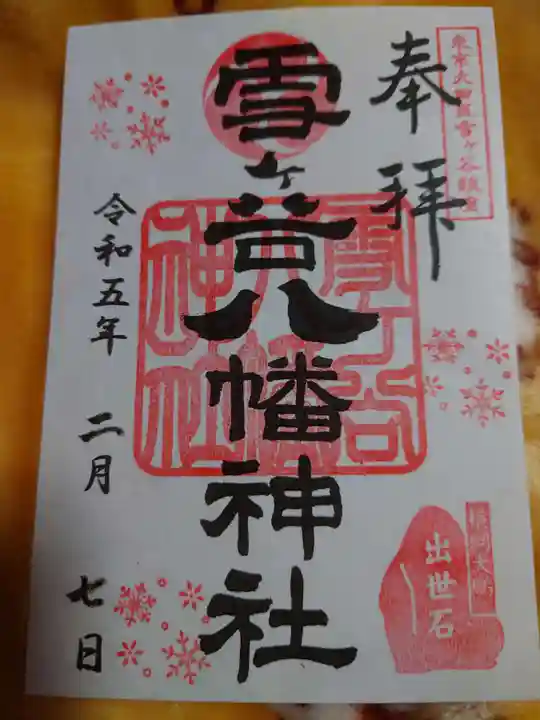 東京大田区雪ヶ谷鎮座
奉拝
雪ヶ谷八幡神社
雪ヶ谷八幡神社
横綱大鵬
出世石
令和五年 二月 七日